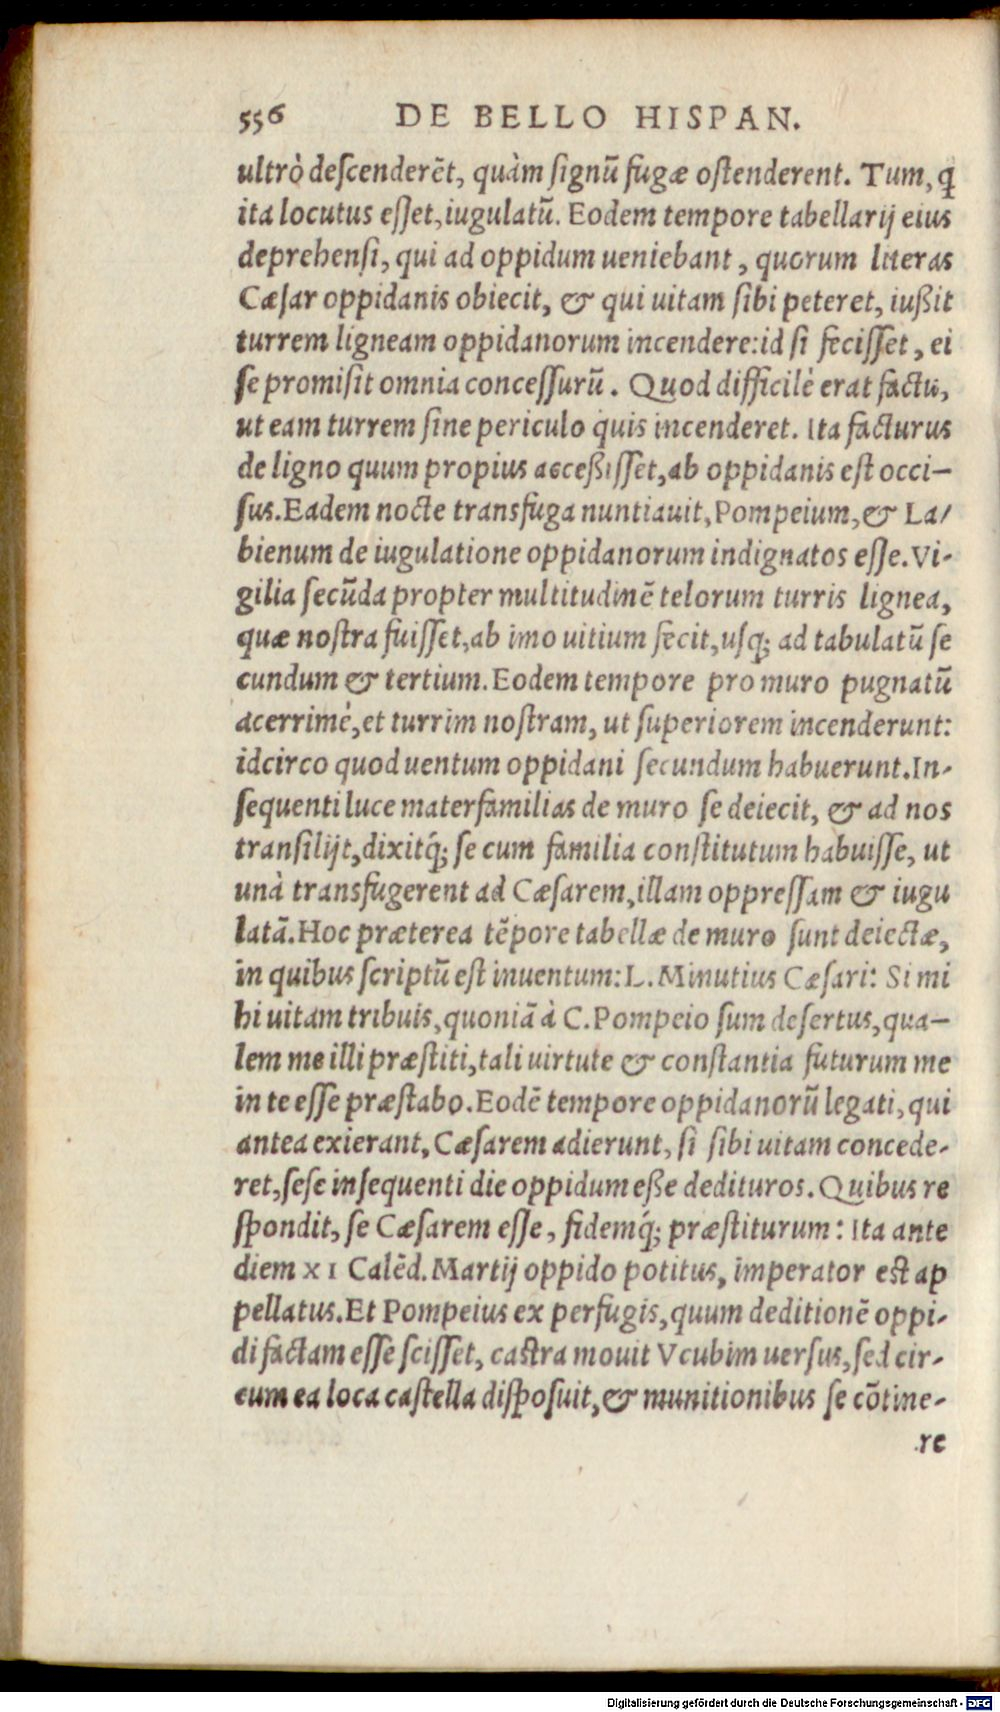 556 DE BELLO HISPAN.
ultrò deſcenderẽt, quàm ſignũ fugæ oſtenderent. Tum, ꝗ
ita locutus eſſet, iugulatũ. Eodem tempore tabellarij eius
deprehenſi, qui ad oppidum ueniebant, quorum literas
Cæſar oppidanis obiecit, & qui uitam ſibi peteret, iußit
turrem ligneam oppidanorum incendere: id ſi feciſſet, ei
ſe promiſit omnia conceſſurũ. Quod difficilè erat factu,
ut eam turrem ſine periculo quis incenderet. Ita facturus
de ligno quum propius acceßiſſet, ab oppidanis eſt occi-
ſus. Eadem nocte transfuga nuntiauit, Pompeium, & La/
bienum de iugulatione oppidanorum indignatos eſſe. Vi-
gilia ſecũda propter multitudinẽ telorum turris lignea,
quæ noſtra fuiſſet, ab imo uitium fecit, uſq; ad tabulatũ ſe
cundum & tertium. Eodem tempore pro muro pugnatũ
acerrimè, et turrim noſtram, ut ſuperiorem incenderunt:
idcirco quod uentum oppidani ſecundum habuerunt. In-
ſequenti luce materfamilias de muro ſe deiecit, & ad nos
tranſilijt, dixitq́; ſe cum familia conſtitutum habuiſſe, ut
unà transfugerent ad Cæſarem, illam oppreſſam & iugu
latã. Hoc præterea tẽpore tabellæ de muro ſunt deiectæ,
in quibus ſcriptũ eſt inuentum: L. Minutius Cæſari: Si mi
hi uitam tribuis, quoniã à C. Pompeio ſum deſertus, qua-
lem me illi præſtiti, tali uirtute & conſtantia futurum me
in te eſſe præſtabo. Eodẽ tempore oppidanorũ legati, qui
antea exierant, Cæſarem adierunt, ſi ſibi uitam concede-
ret, ſeſe inſequenti die oppidum eße dedituros. Quibus re
ſpondit, ſe Cæſarem eſſe, fidemq́; præſtiturum: Ita ante
diem XI Calẽd. Martij oppido potitus, imperator eſt ap
pellatus. Et Pompeius ex perfugis, quum deditionẽ oppi-
di factam eſſe ſciſſet, caſtra mouit Vcubim uerſus, ſed cir-
cum ea loca caſtella diſpoſuit, & munitionibus ſe cõtine-
re
Digitalisierung gefördert durch die Deutsche Forschungsgemeinschaft - DFG